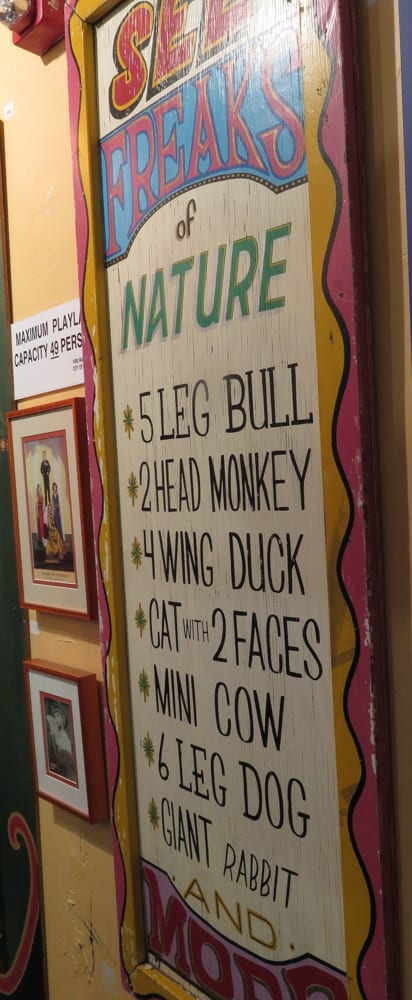 SEE
FREAKS
of
NATURE
5 LEG BULL
2 HEAD MONKEY
4 WING DUCK
CAT WITH 2 FACES
MINI COW
6 LEG DOG
GIANT RABBIT
AND
MORE
MAXIMUM PLAYLA
CAPACITY 49 PERS